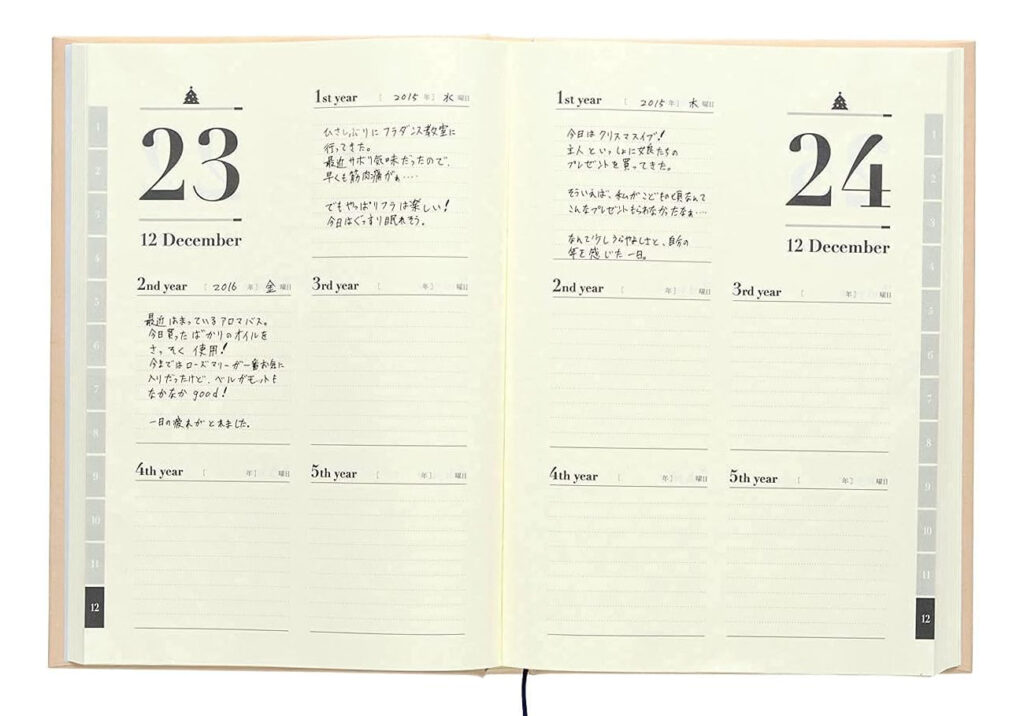 23
12 December
1st year [ 2015 年] 水 曜日
ひさしぶりにフラダンス教室に
行ってきた。
最近サボり気味だったので、
早くも筋肉痛がぁ‥‥
でもやっぱりフラは楽しい!
今日はぐっすり眠れそう。
2nd year [ 2016 年] 金 曜日
最近はまっているアロマバス。
今日買ったばかりのオイルを
さっそく使用!
今まではローズマリーが一番お気に
入りだったけど、ベルガモットも
なかなかgood!
一日の疲れがとれました。
3rd year [ 年] 曜日
4th year [ 年] 曜日
5th year [ 年] 曜日
1
2
3
4
5
6
7
8
9
10
11
12
1st year [ 2015 年] 木 曜日
今日はクリスマスイブ!
主人といっしょに娘たちの
プレゼントを買ってきた。
そういえば、私がこどもの頃なんて
こんなプレゼントもらえなかったなぁ‥‥
なんて少しうらやましさと、自分の
年を感じた一日。
24
12 December
2nd year [ 年] 曜日
3rd year [ 年] 曜日
4th year [ 年] 曜日
5th year [ 年] 曜日
1
2
3
4
5
6
7
8
9
10
11
12